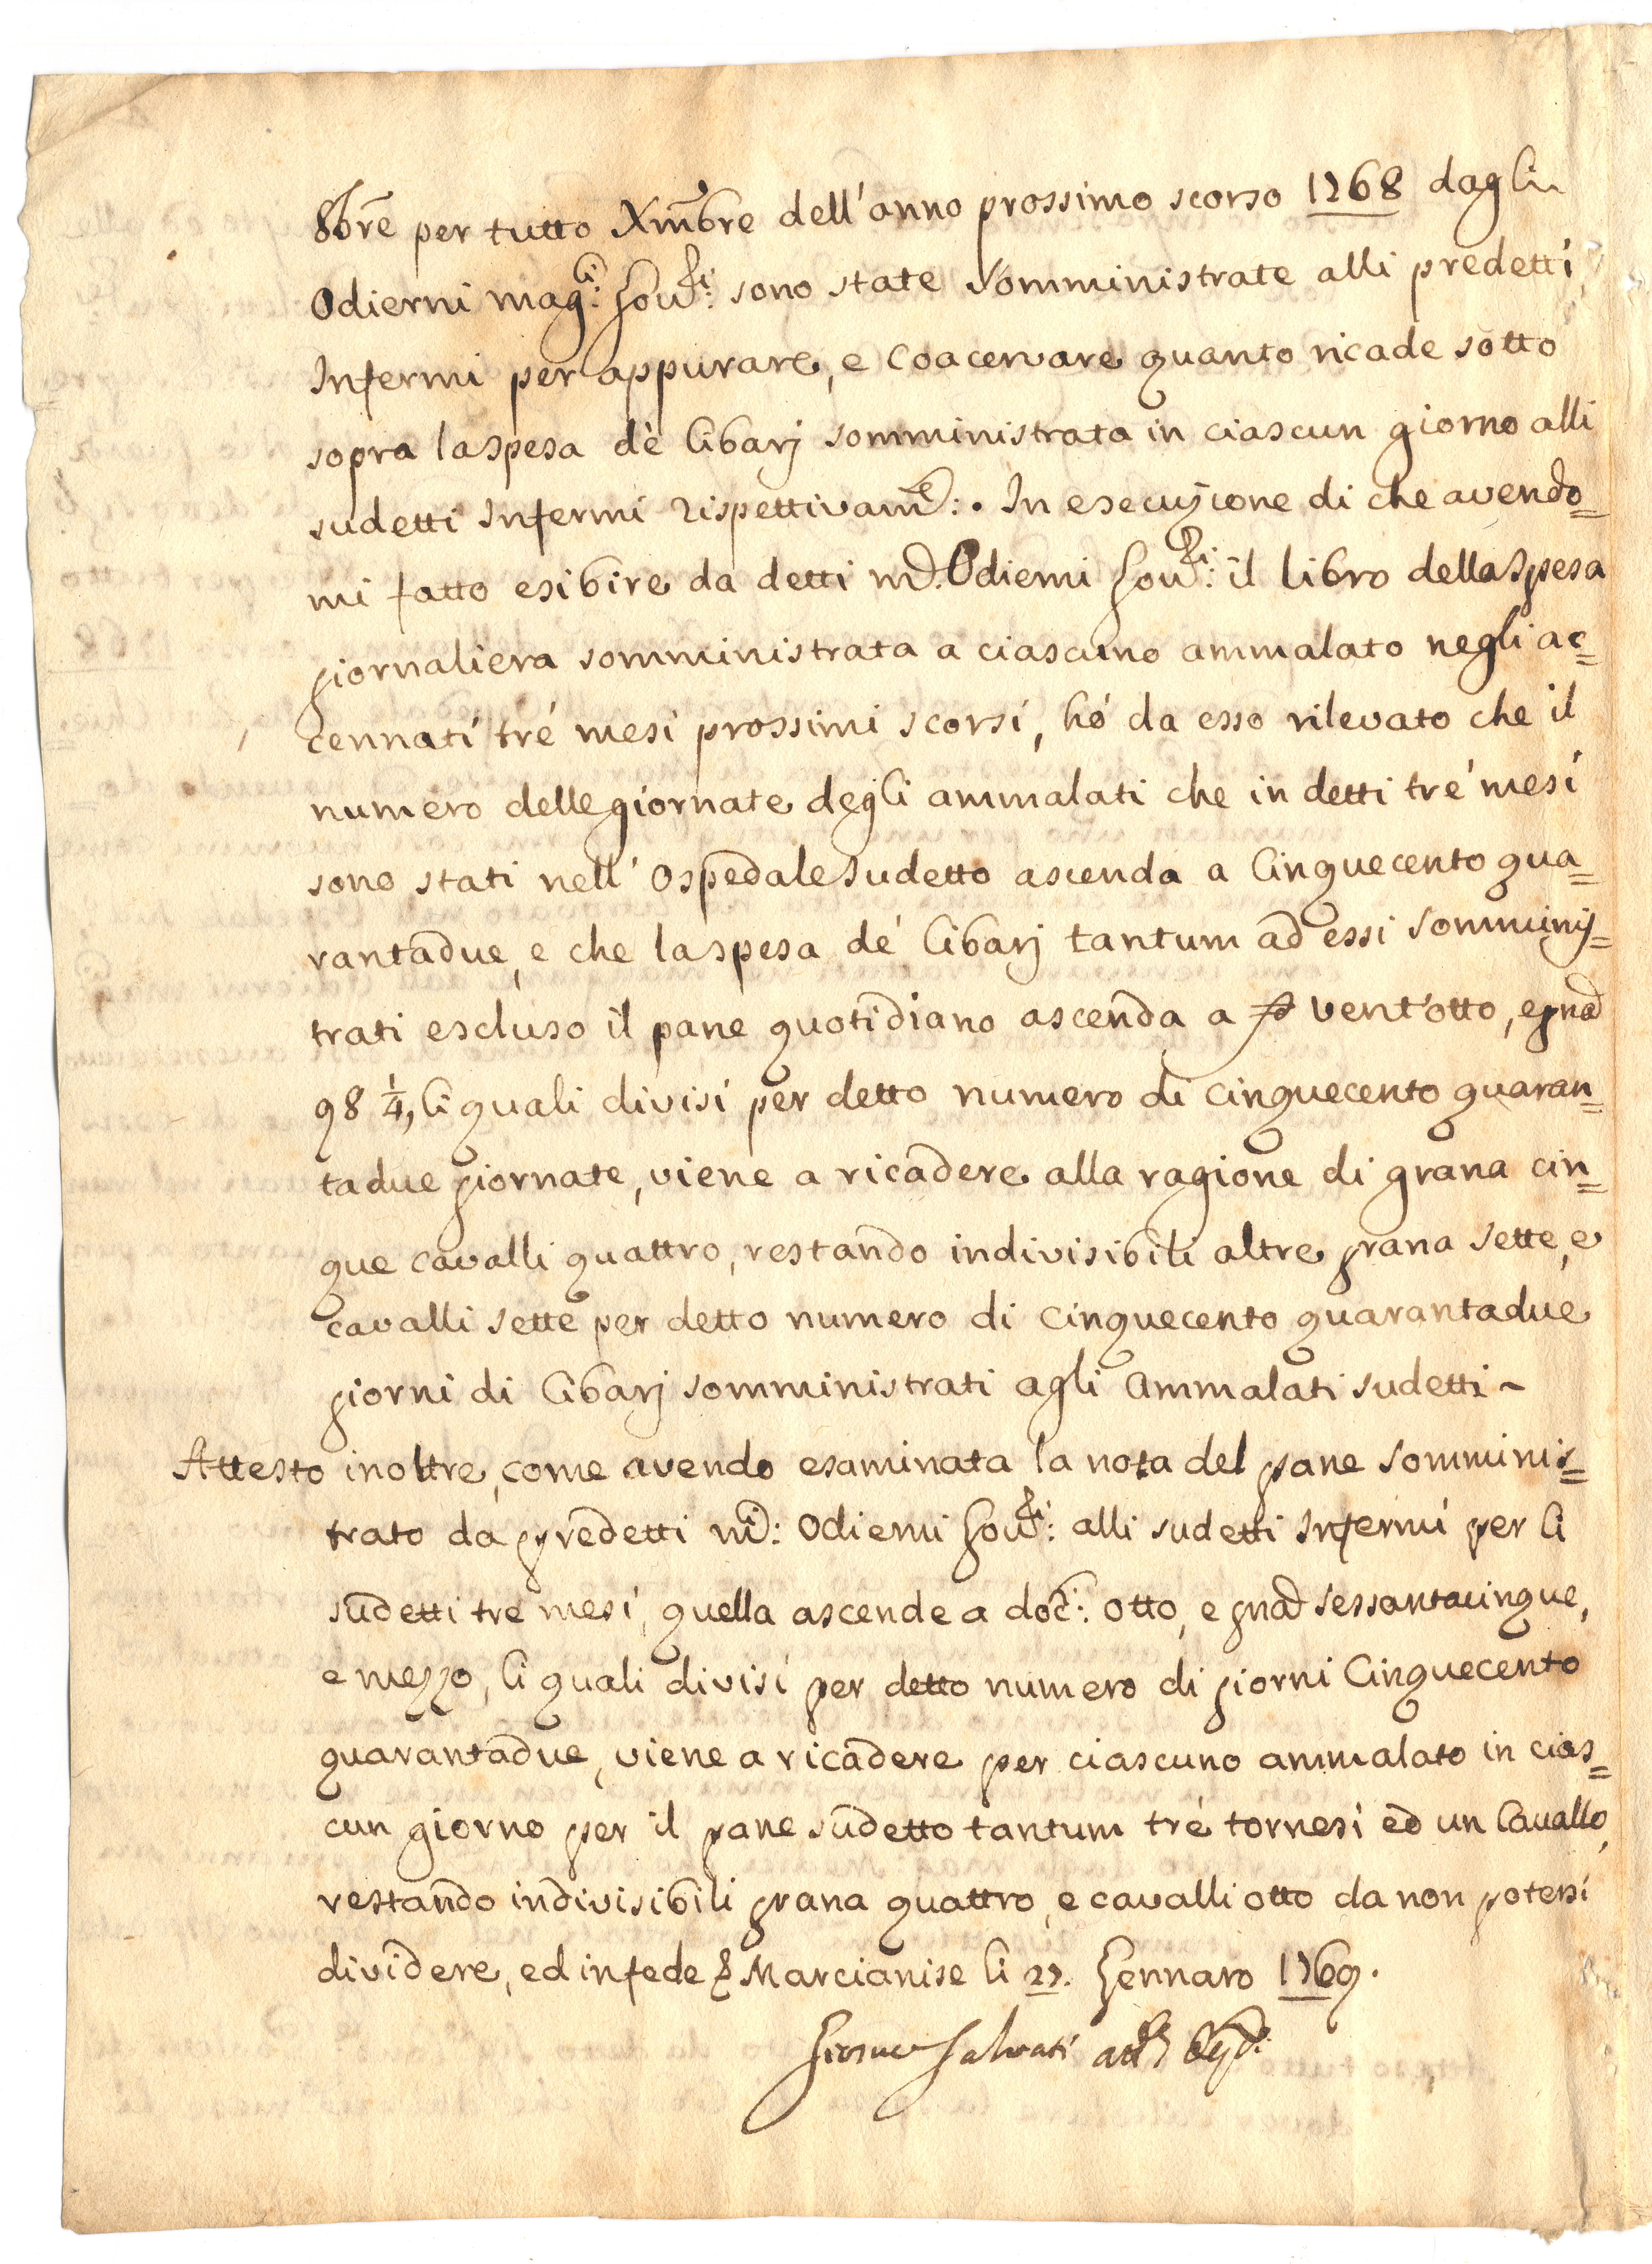 8bre per tutto Xmbre dell'anno prossimo scorso 1768 dagli
Odierni mag:ci Gov:ri sono state somministrate alli predetti
Infermi per appurare, e Coacervare quanto ricade sotto
sopra la spesa dè Cibarj somministrata in ciascun giorno alli
sudetti Infermi rispettivam:e. In esecuzione di che avendo=
mi fatto esibire da detti md: Odierni Gov:ri il libro della spesa
giornaliera somministrata a ciascuno ammalato negli ac=
cennati tré mesi prossimi scorsi, hó da esso rilevato che il
numero delle giornate degli ammalati che in detti tré mesi
sono stati nell'Ospedale sudetto ascenda a Cinquecento qua=
rantadue, e che la spesa dé Cibarj tantum ad essi somminis=
trati escluso il pane quotidiano ascenda a vent'otto, e gnd
98 1/4, li quali divisi per detto numero di cinquecento quaran=
tadue giornate, viene a ricadere alla ragione di grana cin=
que cavalli quattro, restando indivisibili altre grana sette, e
cavalli sette per detto numero di cinquecento quarantadue
giorni di Cibarj somministrati agli Ammalati sudetti ~
Attesto inoltre, come avendo esaminata la nota del pane somminis=
trato da predetti md: Odierni Gov:ri alli sudetti Infermi per li
sudetti tre mesi, quella ascende a doc:ti otto, e gnd sessantacinque,
e mezzo, li quali divisi per detto numero di giorni Cinquecento
quarantadue, viene a ricadere per ciascuno ammalato in cias=
cun giorno per il pane sudetto tantum tré tornesi ed un Cavallo,
restando indivisibili grana quattro, e cavalli otto da non potersi
dividere, ed in fede Marcianise li 27. Gennaro 1769.
Giosue Salvati